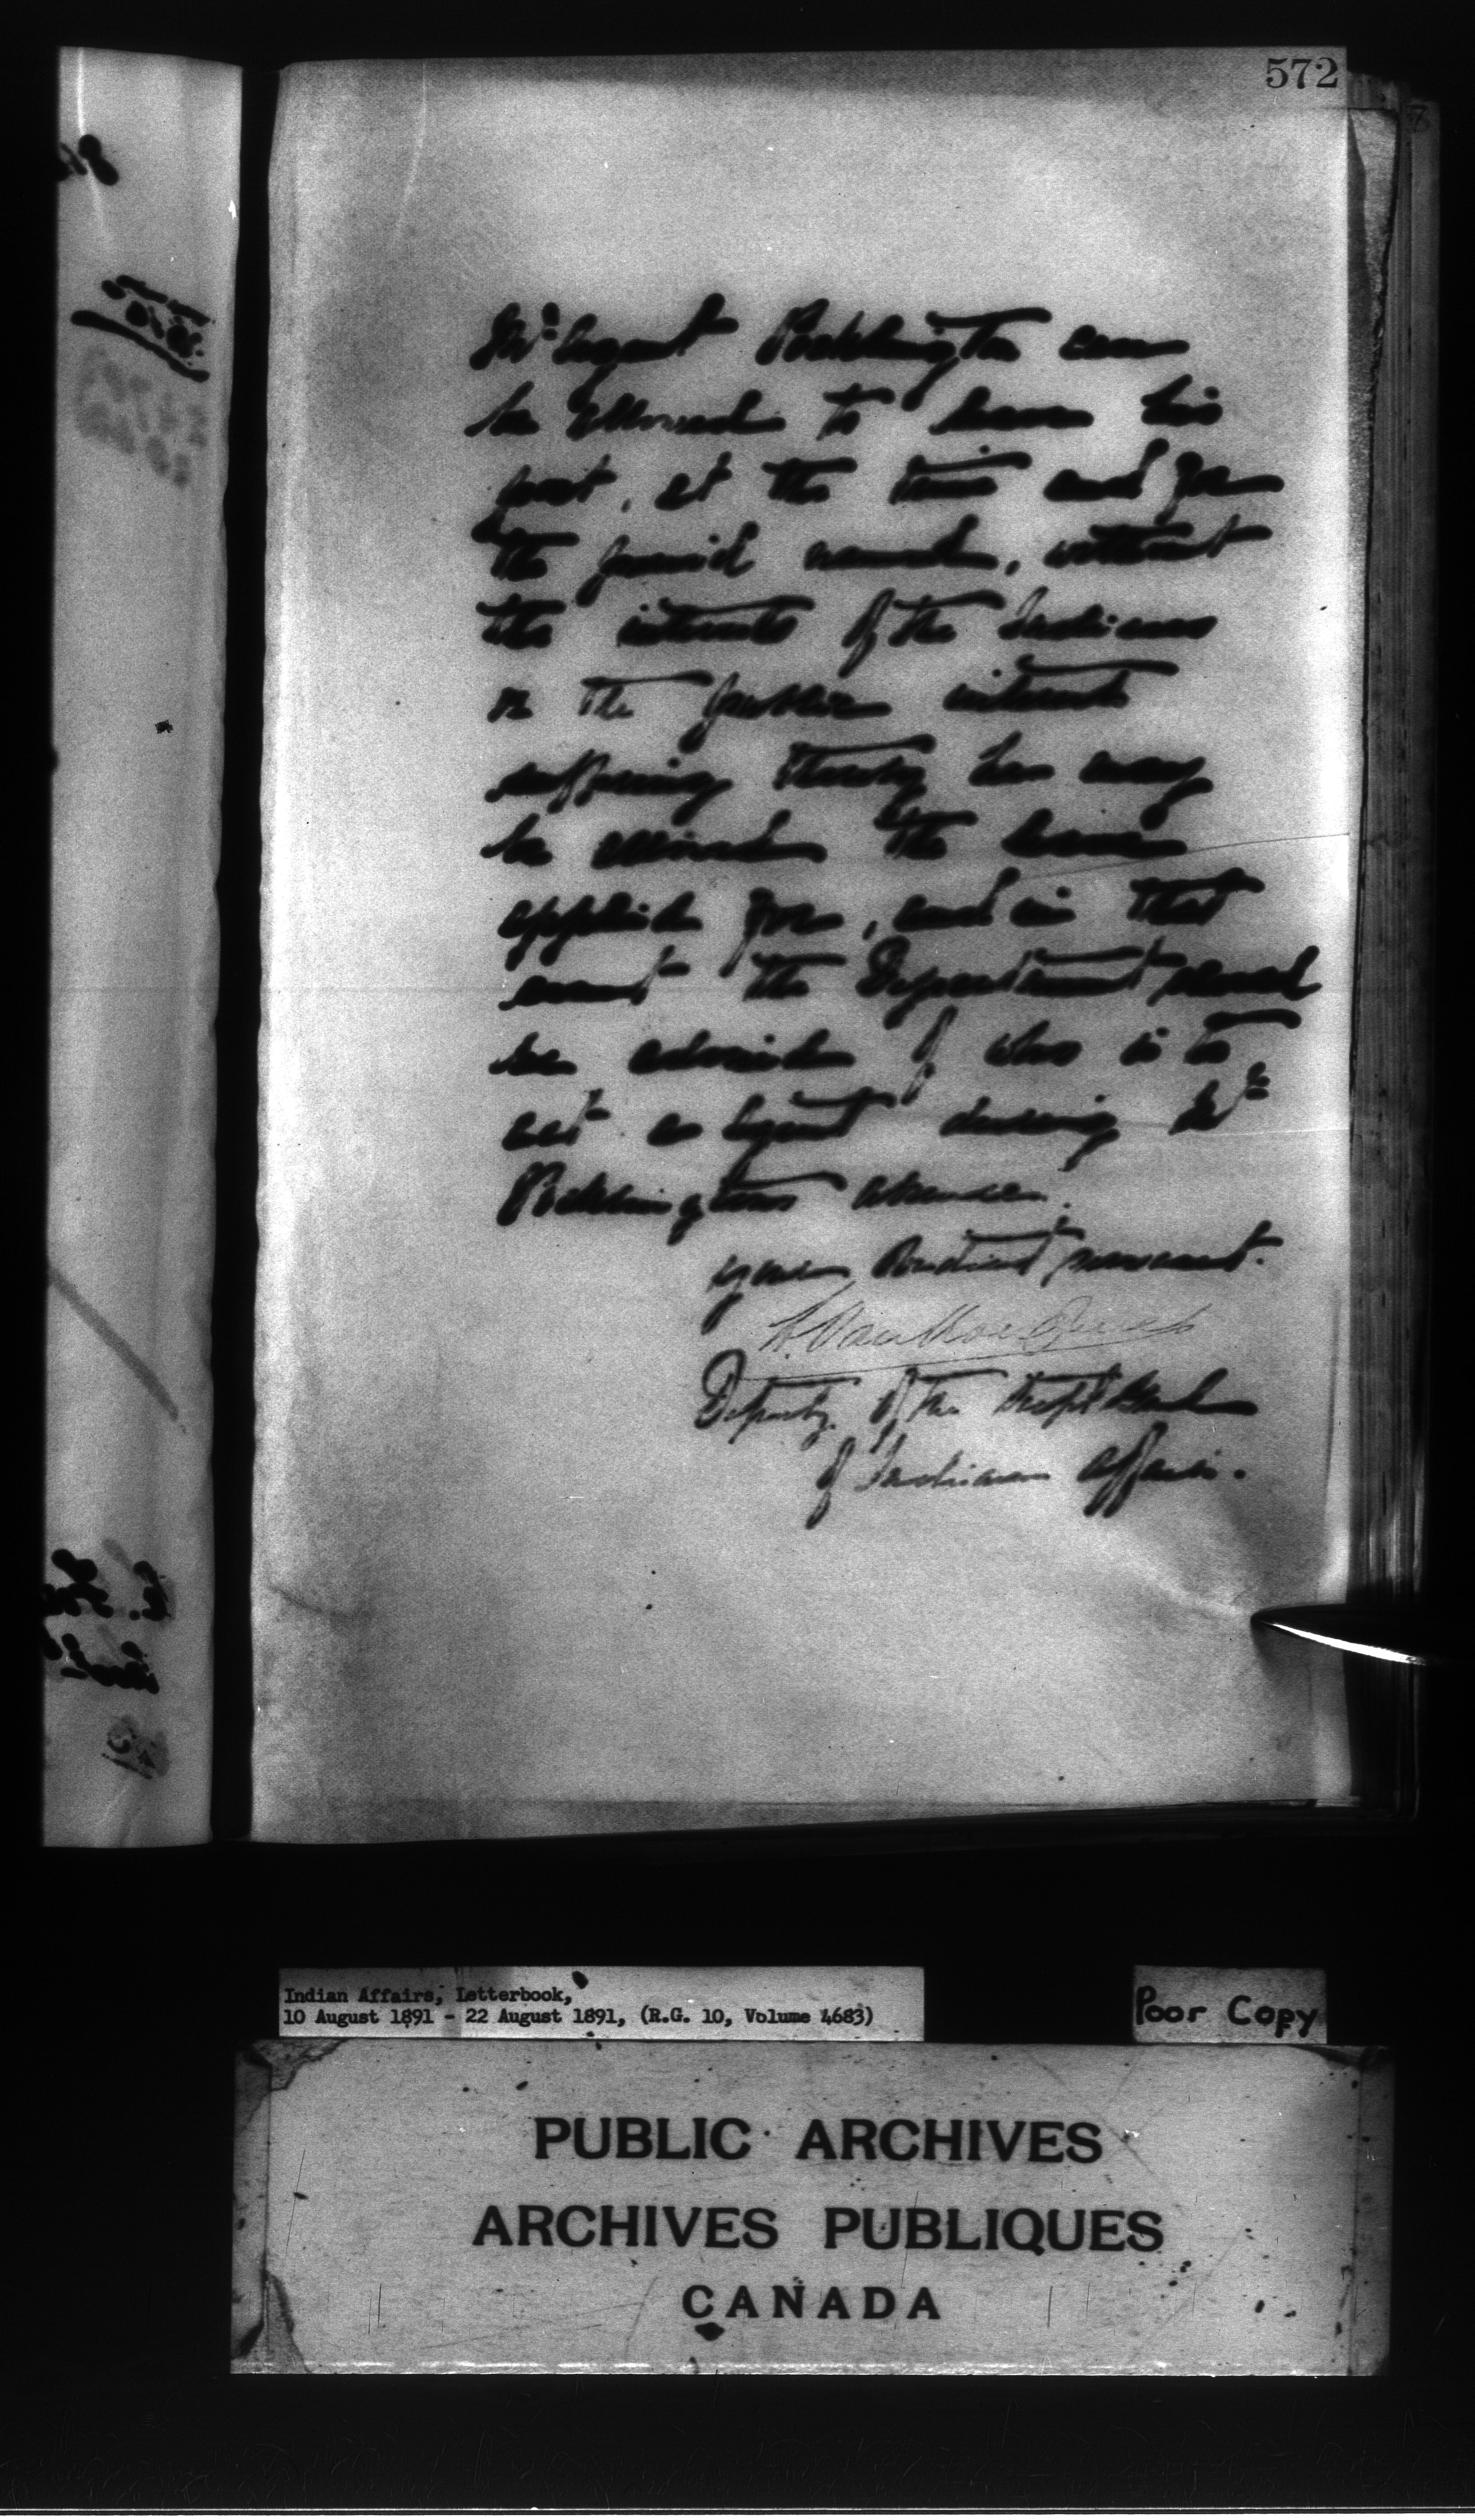 572
Mr Agent Pocklington can
be allowed to leave his
post, at the time and for
the period named, without
the interests of the Indians
or the public interests
suffering thereby he may
be allowed the leave
applied for, and in that
event the Department should
be advised of who is to
act as Agent during Mr
Pocklingtons absence.
your obedient servant.
L. Vankoughnet
Deputy of the Supt Genl
of Indian Affairs.
Indian Affairs, Letterbook,
10 August 1891 - 22 August 1891, (R.G. 10, Volume 4683)
Poor Copy
PUBLIC ARCHIVES
ARCHIVES PUBLIQUES
CANADA